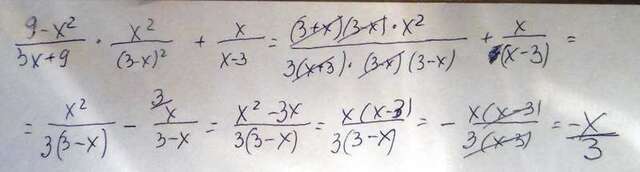 (9-x²)/(3x+9) · x²/(3-x)² + x/(x-3) = ((3+x)(3-x)·x²)/(3(x+3)·(3-x)(3-x)) + x/(x-3) =
= x²/(3(3-x)) - ³x/(3-x) = (x²-3x)/(3(3-x)) = x(x-3)/(3(3-x)) = - x(x-3)/(3(x-3)) = -x/3